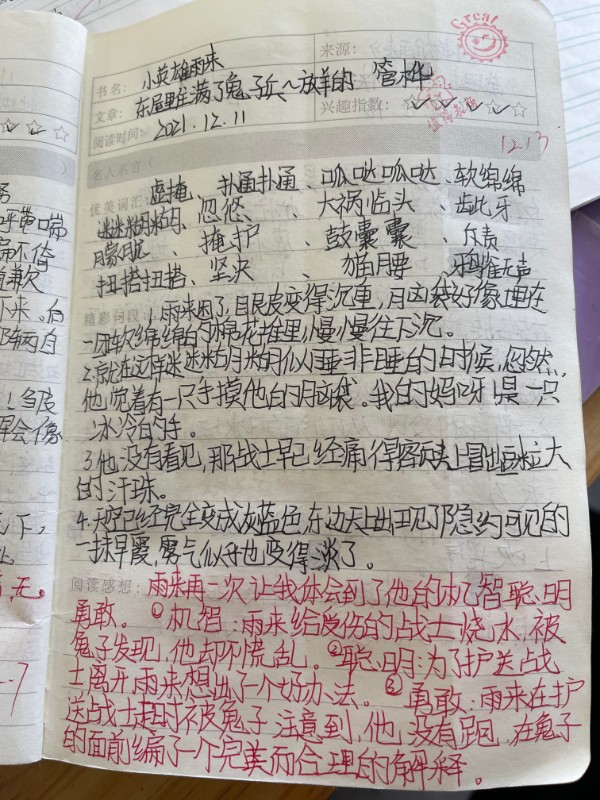 Great
书名：小英雄雨来
来源：
文章：东屋里住满了鬼子兵~放羊的 管桦
兴趣指数：
阅读时间：2021.12.11
12.13
名人名言（
优美词汇
虚掩 扑通扑通、呱哒呱哒、软绵绵
迷迷糊糊、忽悠、大祸临头、龇牙
朦胧、掩护、鼓囊囊、斥责
扭搭扭搭、坚决、猫腰、鸦雀无声
精彩词段
1.雨来困了,眼皮变得沉重,脑袋好像埋在
一团软绵绵的棉花堆里,慢慢往下沉。
2.就在这样迷迷糊糊似睡非睡的时候,忽然,
他觉着有一只手摸他的脑袋。我的妈呀!是一只
冰冷的手。
3.他没有看见,那战士早已经痛得额头上冒出豆粒大
的汗珠。
4.天空已经完全变成灰蓝色,东边天上出现了隐约可见的
一抹早霞,雾气似乎也变得淡了。
阅读感想：雨来再一次让我体会到了他的机智聪明
勇敢。①机智:雨来给受伤的战士烧水,被
鬼子发现,他却不慌乱。②聪明:为了护送战
士离开,雨来想出了个好办法。③勇敢:雨来在护
送战士走时被鬼子注意到,他没有跑,在鬼子
的面前编了一个完美而合理的解释。